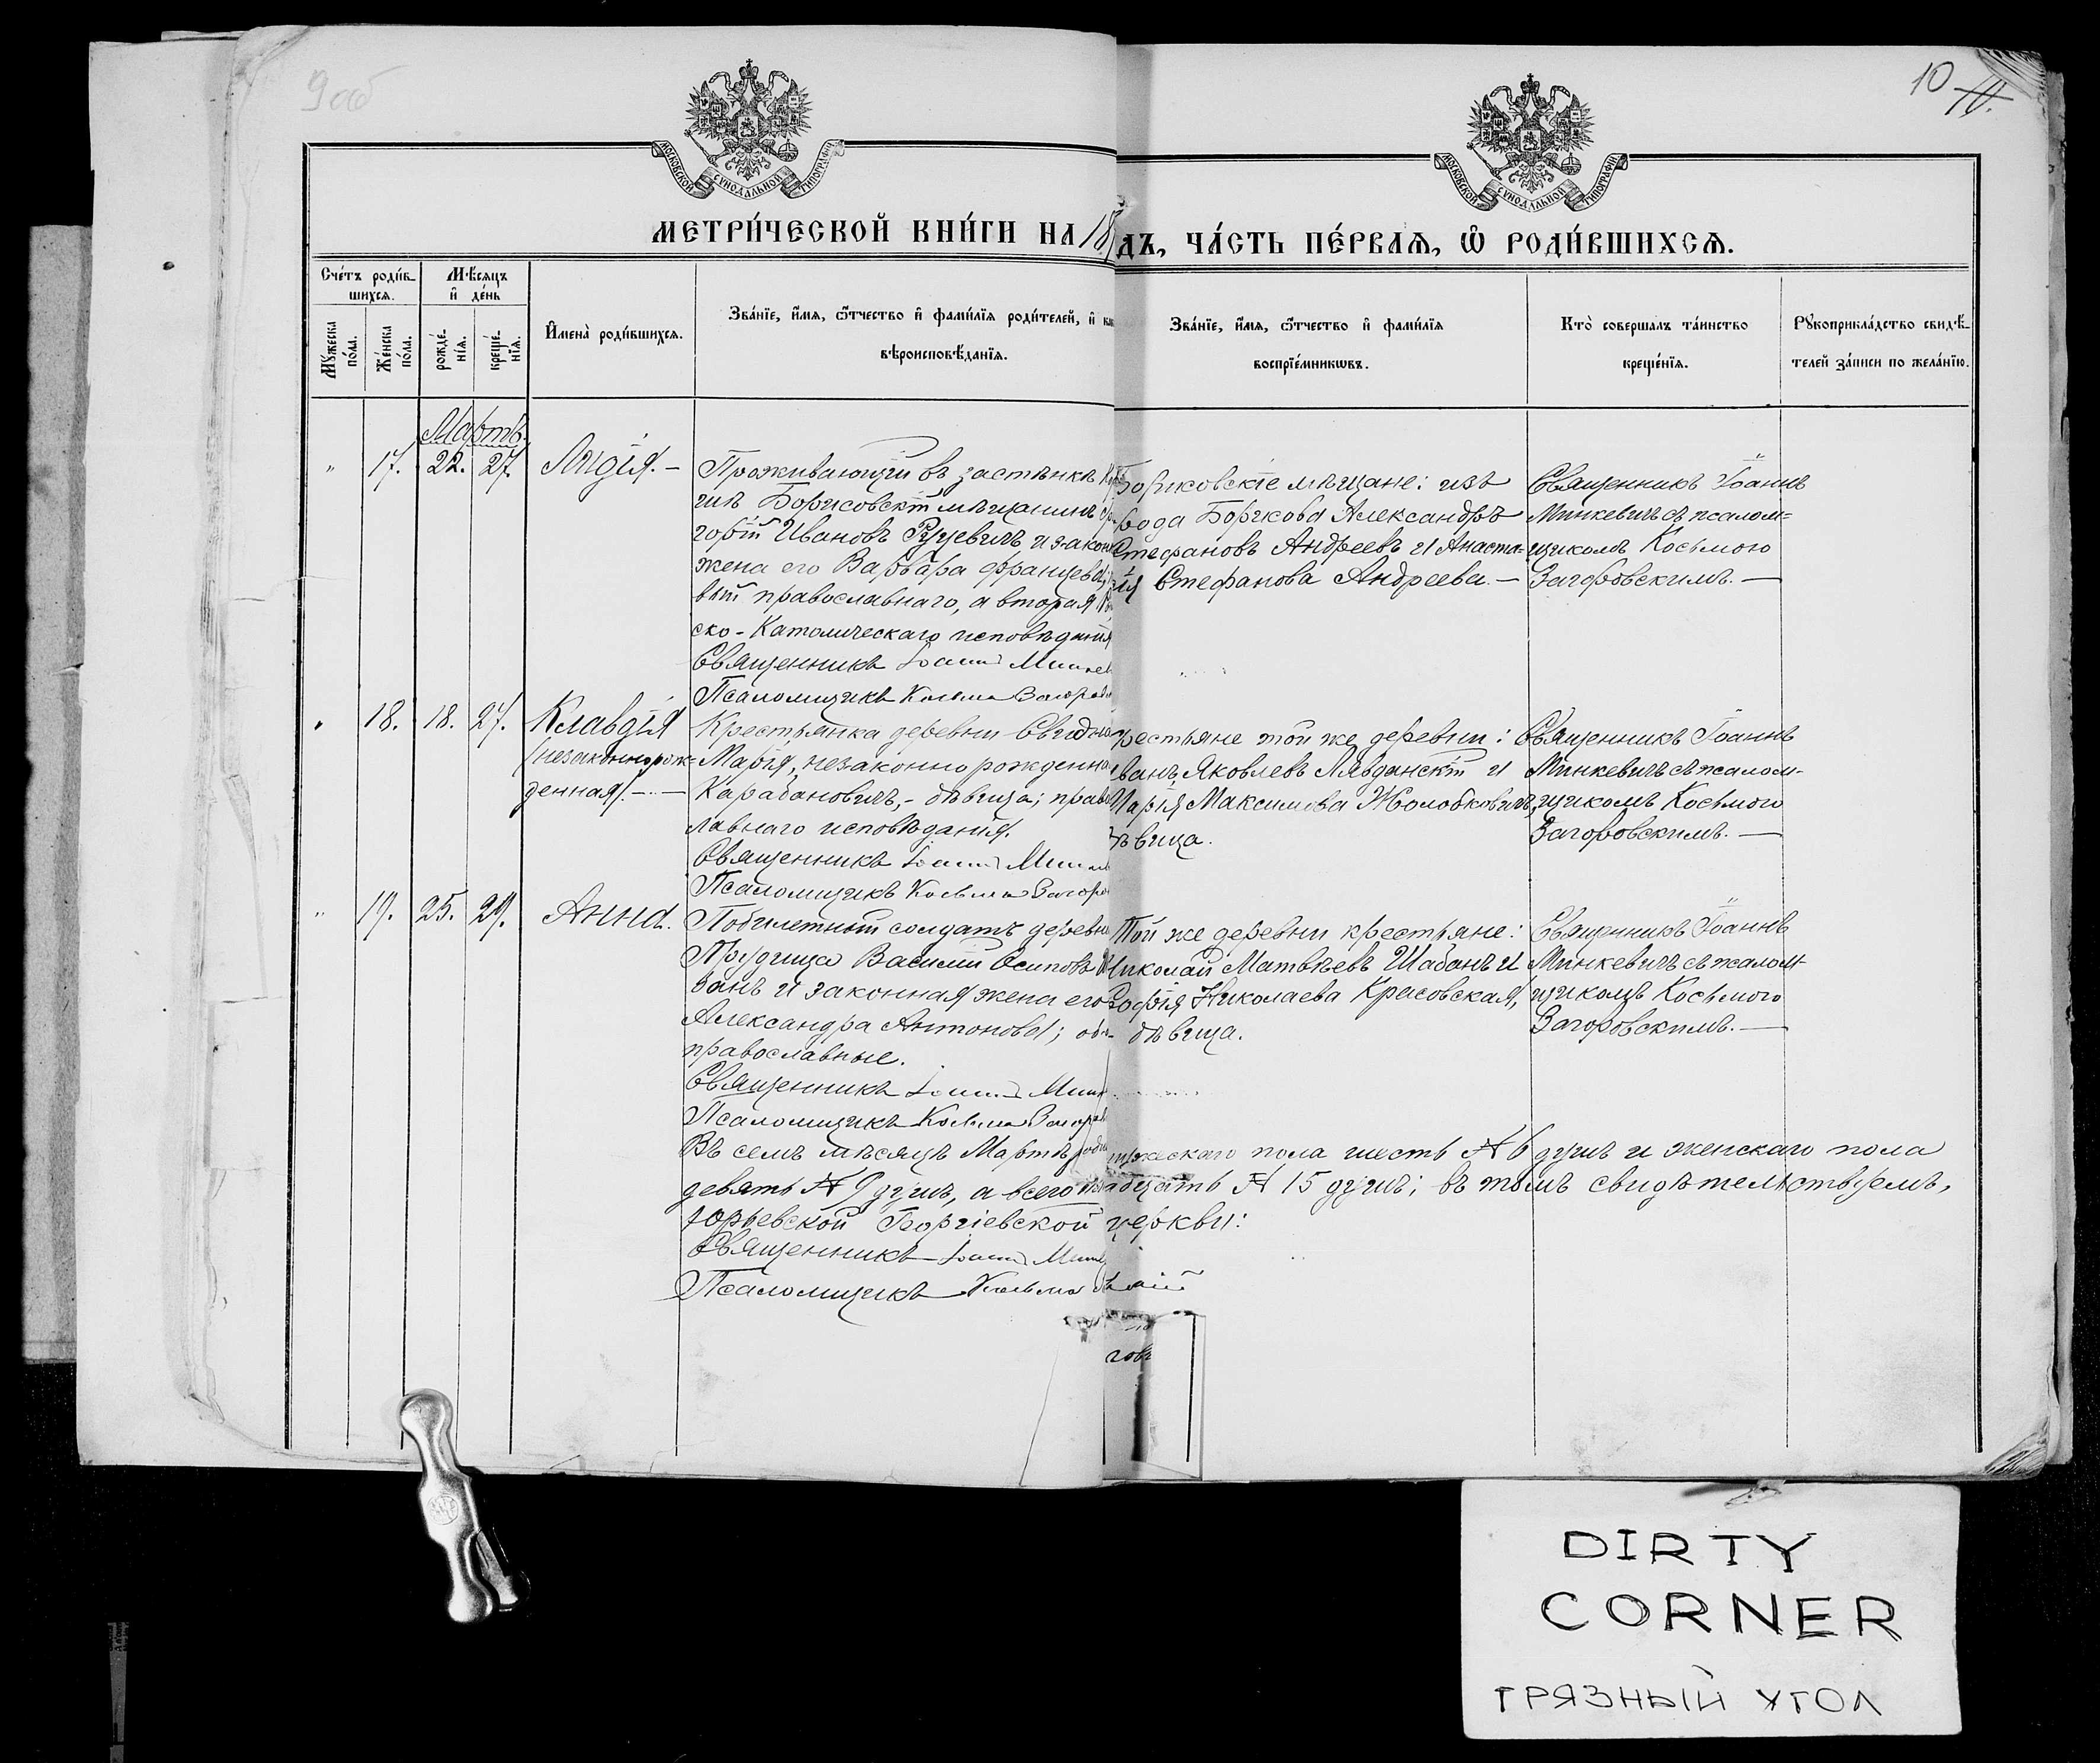 9об
10
МОСКОВСКОЙ СѴНОДАЛЬНОЙ ТИПОГРАФІИ
МОСКОВСКОЙ СѴНОДАЛЬНОЙ ТИПОГРАФІИ
МЕТРИ́ЧЕСКОЙ КНИ́ГИ НА 18
ДЪ, ЧА́СТЬ ПЕ́РВАѦ, Ѡ҆ РОДИ́ВШИХСѦ.
Сче́тъ роди́в-
шихсѧ.
Мѣ́сѧцъ
и҆ де́нь
Мꙋ́жеска
по́ла.
Же́нска
по́ла.
рожде́-
нїѧ.
креще́-
нїѧ.
И҆мена̀ роди́вшихсѧ.
Зва́нїе, и҆́мѧ, ѻ҆́тчество и҆ фами́лїѧ роди́телей, и҆
вѣроисповѣ́данїѧ.
Зва́нїе, и҆́мѧ, ѻ҆́тчество и҆ фами́лїѧ
воспрїе́мникѡвъ.
Кто̀ соверша́лъ та́инство
креще́нїѧ.
Рꙋкоприкла́дство свидѣ́-
телей за́писи по жела́нїю.
Мартъ.
" 17. 22. 27. Лидія. –
Проживающій въ застѣнкѣ
Борисовскій мѣщанинъ
горій Ивановъ Руцевичъ и закон
жена его Варвара Францева;
вый православнаго, а вторая
ско-Католическаго исповѣданія
Священникъ Іоаннъ Минкев
Псаломщикъ Косьма Загоров
Борковскіе мѣщане: изъ
рода Боркова Александръ
Стефановъ Андреевъ и Анаста-
зія Стефанова Андреева. –
Священникъ Іоаннъ
Минкевичъ съ псалом=
щикомъ Косьмою
Загоровскимъ. –
" 18. 18. 27. Клавдія
/незаконнорож-
денная/. –
Крестьянка деревни
Марія, незаконно рожденна
Карабановичъ, – дѣвица; право
лавнаго исповѣданія.
Священникъ Іоаннъ Минк
Псаломщикъ Косьма Загоро
рестьяне той же деревни:
ванъ Яковлевъ Лявданскій и
Марія Максимова Жолобковичъ,
дѣвица.
Священникъ Іоаннъ
Минкевичъ съ псалом-
щикомъ Косьмою
Загоровскимъ. –
" 19. 25. 29. Анна.
Побилетный солдатъ деревни
Прудища Василій Осиповъ
банъ и законная жена его
Александра Антонова; оба
православные.
Священникъ Іоаннъ Минк
Псаломщикъ Косьма Загоров
Той же деревни крестьяне:
Николай Матвѣевъ Шабанъ и
Софія Николаева Красовская,
дѣвица.
Священникъ Іоаннъ
Минкевичъ съ псалом-
щикомъ Косьмою
Загоровскимъ. –
Въ семъ мѣсяцѣ Мартѣ мужескаго пола шесть № 6 душъ и женскаго пола
девять № 9 душъ, а всего пятнадцать № 15 душъ; въ томъ свидѣтельствуемъ,
Юрьевской Георгіевской церкви:
Священникъ Іоаннъ Минк
Псаломщикъ Косьма
говъ
DIRTY
CORNER
ГРЯЗНЫЙ УГОЛ